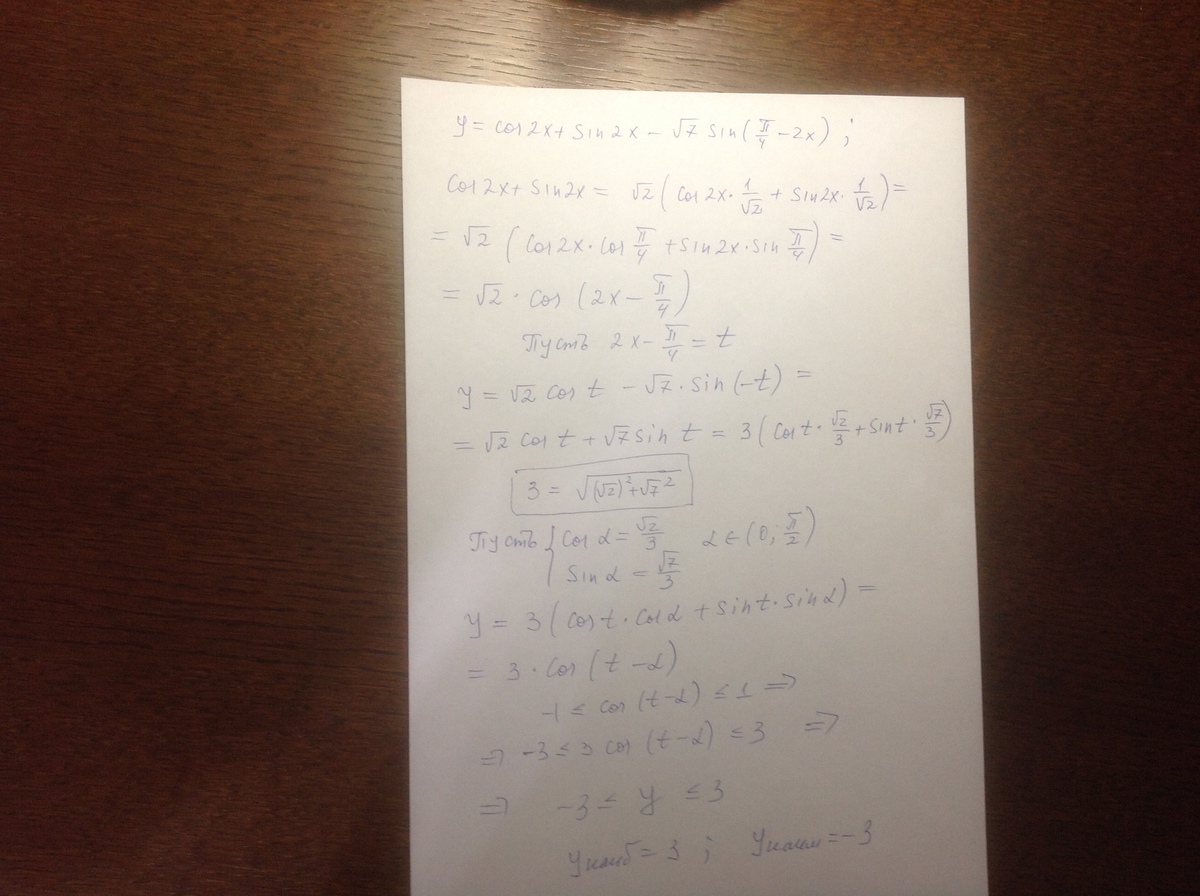 y = cos2x + sin2x − √7 sin(π/4 − 2x) ;
cos2x + sin2x = √2 (cos2x · 1/√2 + sin2x · 1/√2) =
= √2 (cos2x · cos π/4 + sin2x · sin π/4) =
= √2 · cos (2x − π/4)
Пусть 2x − π/4 = t
y = √2 cos t − √7 · sin(−t) =
= √2 cos t + √7 sin t = 3(cos t · √2/3 + sin t · √7/3)
3 = √((√2)² + √7²)
Пусть { cos α = √2/3 α ∈ (0; π/2)
sin α = √7/3
y = 3(cos t · cos α + sin t · sin α) =
= 3 · cos (t − α)
−1 ≤ cos (t − α) ≤ 1 ⇒
⇒ −3 ≤ 3 cos (t − α) ≤ 3 ⇒
⇒ −3 ≤ y ≤ 3
y наиб = 3 ; y наим = −3